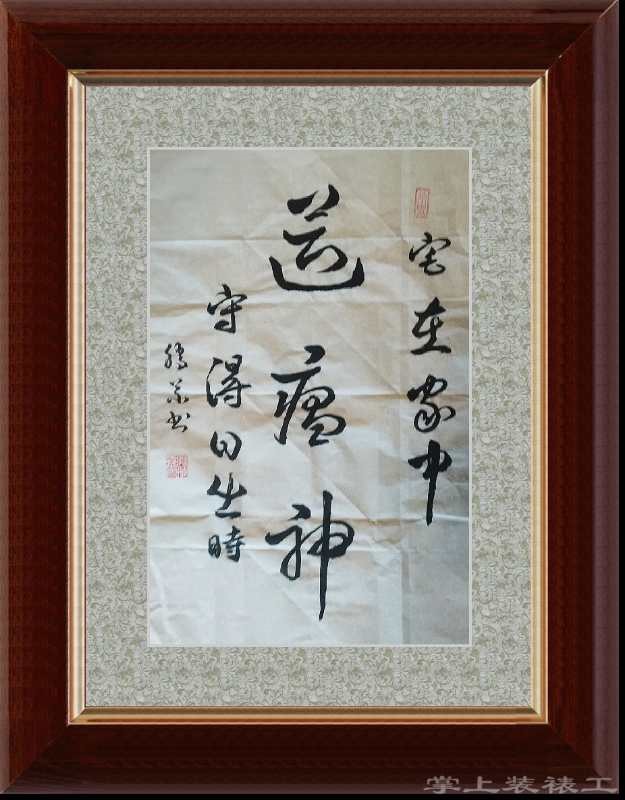 宅在家中
送瘟神
守得日出時
書
掌上装裱工